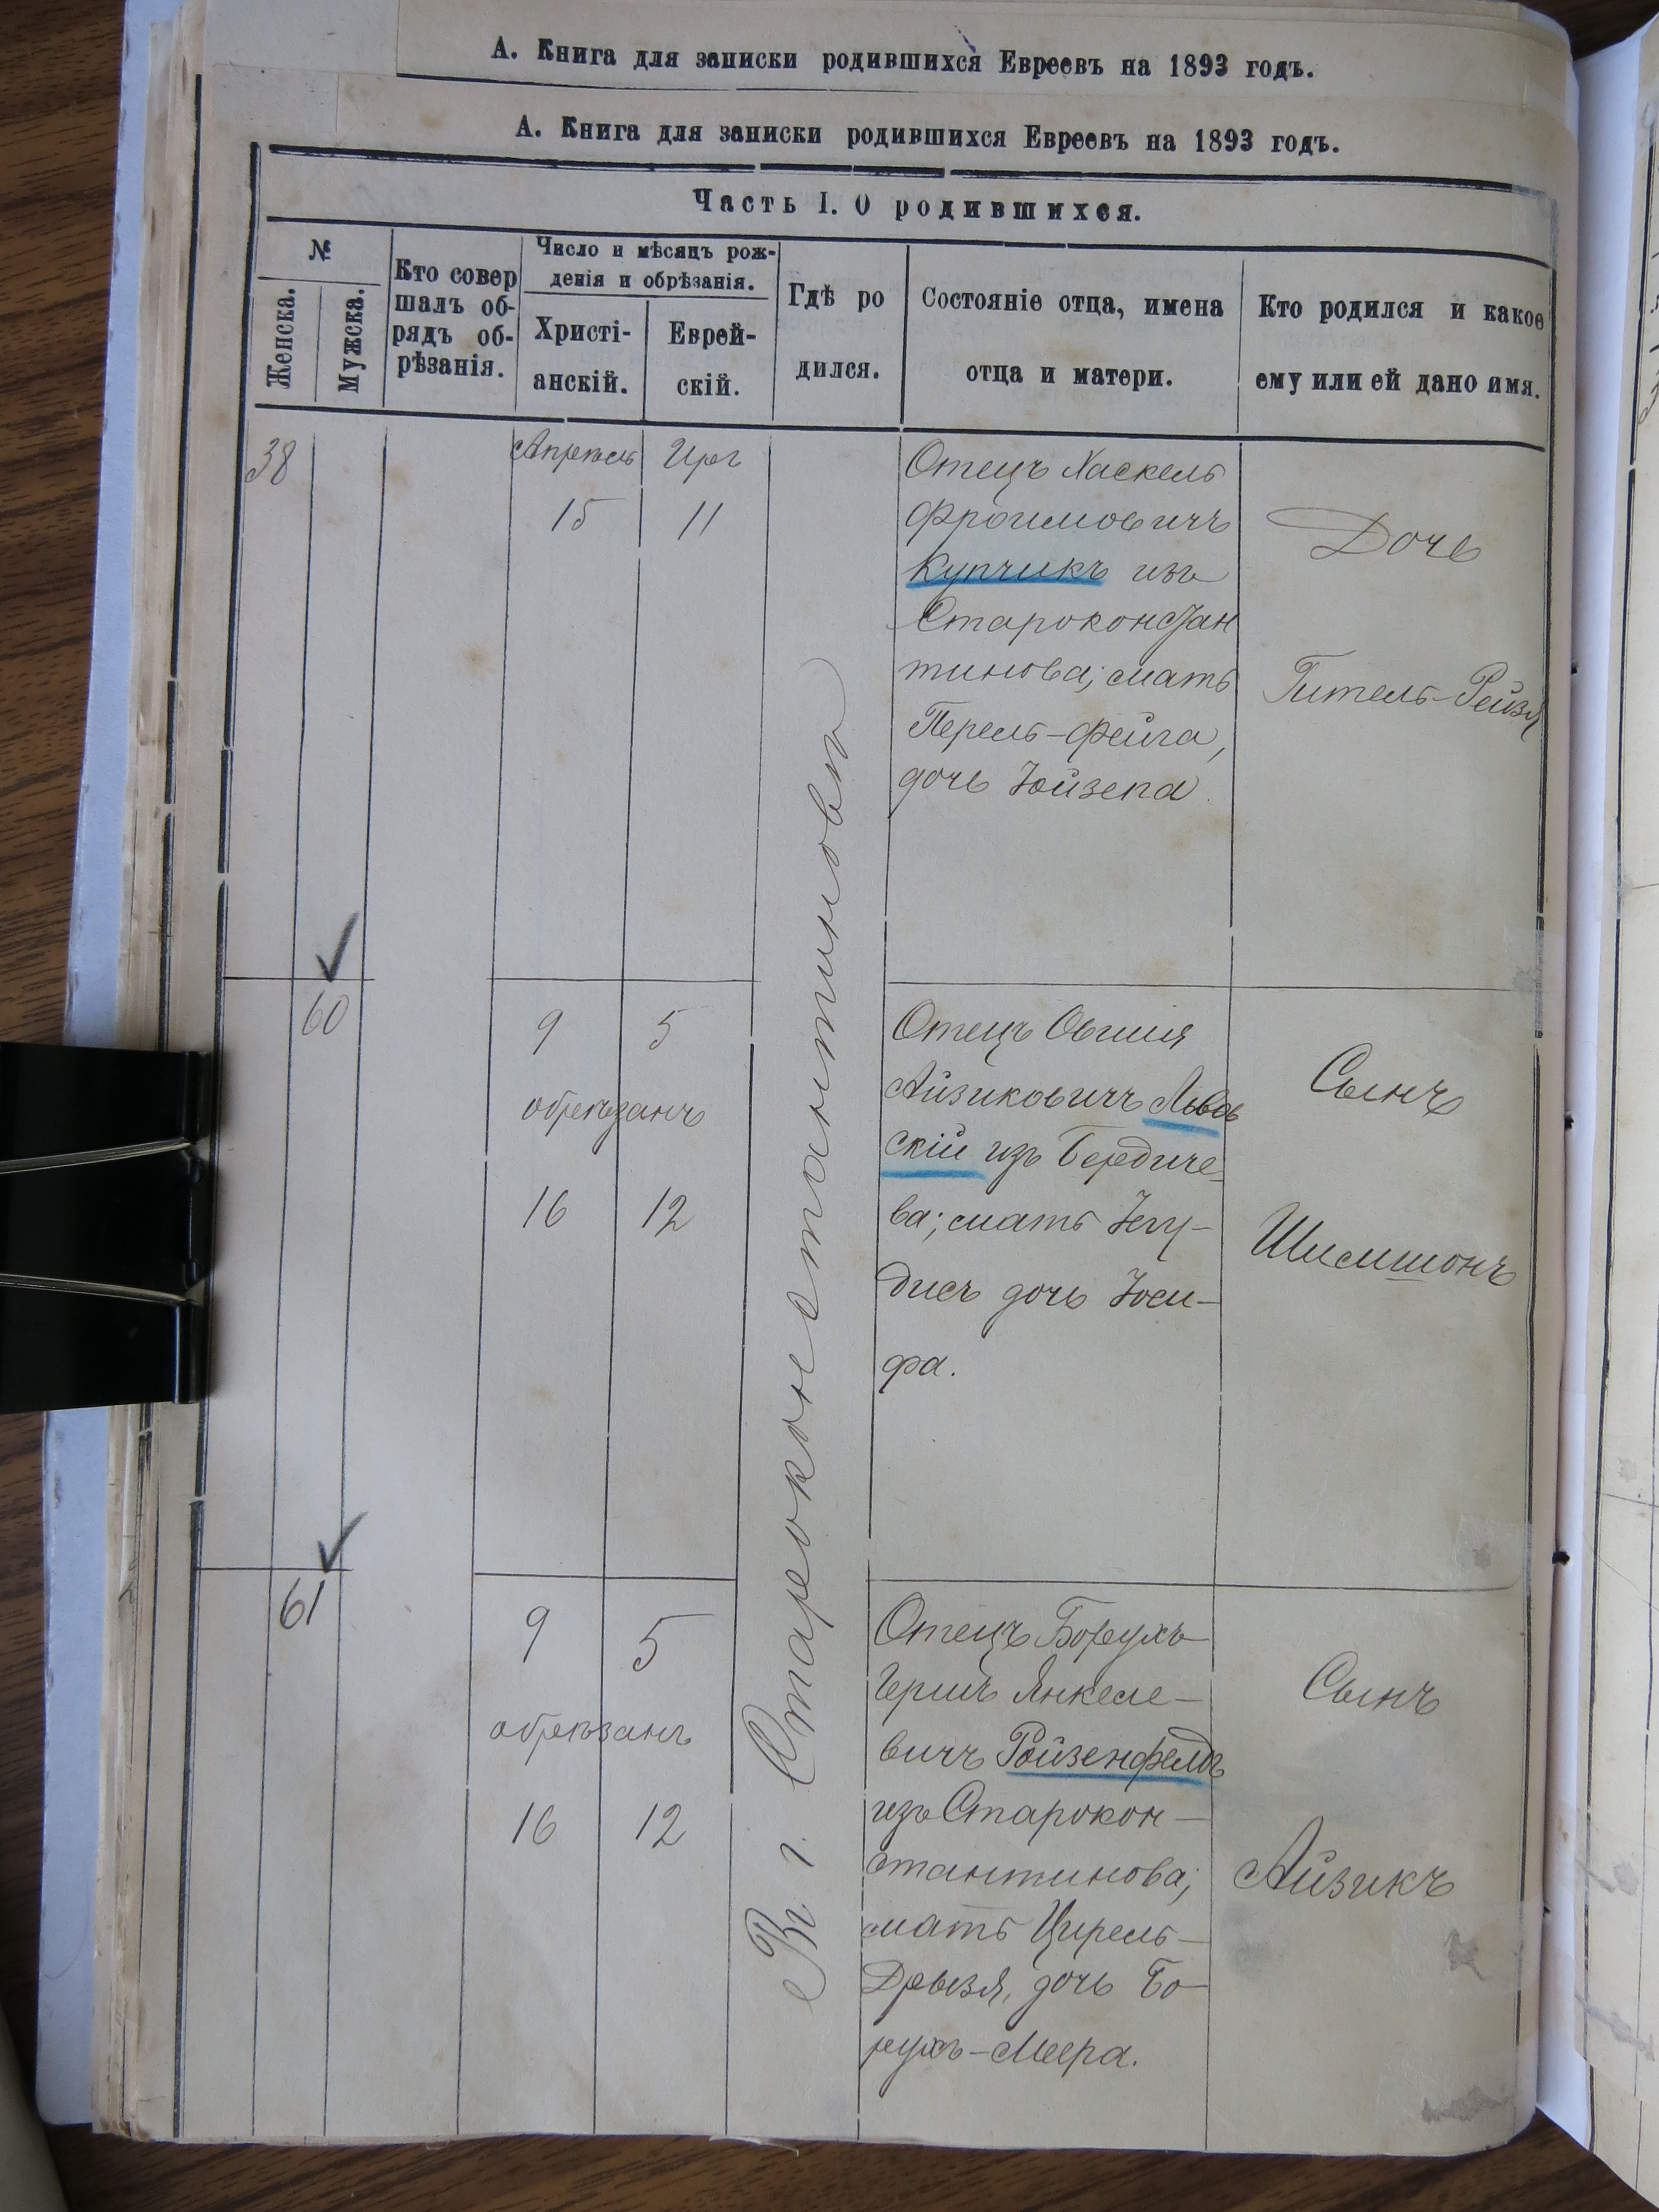 А. Книга для записки родившихся Евреевъ на 1893 годъ.
А. Книга для записки родившихся Евреевъ на 1893 годъ.
Часть I. О родившихся.
№
Женска.
Мужска.
Кто совер
шалъ об-
рядъ об-
рѣзанія.
Число и мѣсяцъ рож-
денія и обрѣзанія.
Христі-
анскій.
Еврей-
скій.
Гдѣ ро
дился.
Состояніе отца, имена
отца и матери.
Кто родился и какое
ему или ей дано имя.
38
Апрѣль
15
Іира
11
Въ г. Староконстантиновѣ
Отецъ Хаскель
Фроимовичъ
Купчикъ изъ
Староконстан
тинова; мать
Перель-Фейга,
дочь Іойзепа
Дочь
Гитель-Рейзя
60
9
5
обрѣзанъ
16
12
Отецъ Овшия
Айзиковичъ Львов
скій изъ Бердиче-
ва; мать Іегу-
дисъ дочь Іоси-
фа.
Сынъ
Шимшонъ
61
9
5
обрѣзанъ
16
12
Отецъ Борухъ
Гершъ Янкеле-
вичъ Ройзенфелдъ
изъ Старокон-
стантинова;
мать Цирель-
Дрызя, дочь Бо-
рухъ-Меера.
Сынъ
Айзикъ